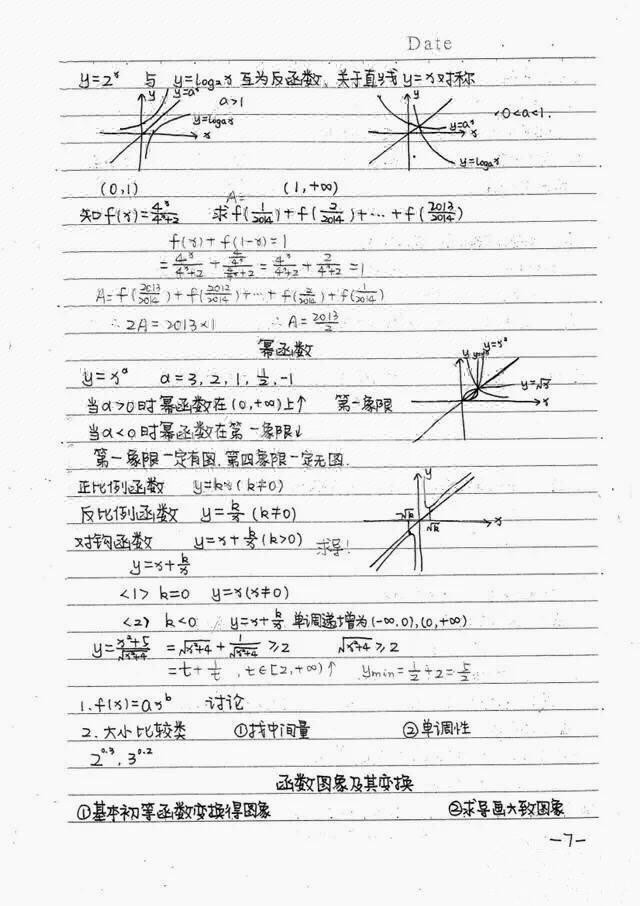 Date
y=2ˣ 与 y=log₂x 互为反函数、关于直线 y=x对称
y y=aˣ a>1 y=logₐx x
y 0<a<1. y=aˣ x y=logₐx
(0,1) (1,+∞)
知 f(x)=4ˣ/(4ˣ+2) A= 求 f(1/2014)+f(2/2014)+…+f(2013/2014)
f(x)+f(1-x)=1
=4ˣ/(4ˣ+2)+(4/4ˣ)/(4/4ˣ+2)=4ˣ/(4ˣ+2)+2/(4ˣ+2)=1
A=f(2013/2014)+f(2012/2014)+…+f(2/2014)+f(1/2014)
∴2A=2013×1 ∴A=2013/2
幂函数
y=xᵃ a=3,2,1,1/2,-1
y y=x³ y=√x x
当a>0时幂函数在(0,+∞)上↑ 第一象限
当a<0时幂函数在第一象限↓
第一象限一定有图.第四象限一定无图.
正比例函数 y=kx(k≠0)
反比例函数 y=k/x (k≠0)
y -√k √k x
对钩函数 y=x+k/x(k>0) 求导!
y=x+k/x
<1> k=0 y=x(x≠0)
<2> k<0 y=x+k/x 单调递增为(-∞.0),(0,+∞)
y=(x²+5)/√(x²+4) =√(x²+4)+1/√(x²+4)≥2 √(x²+4)≥2
=t+1/t ,t∈[2,+∞)↑ ymin=1/2+2=5/2
1.f(x)=axᵇ 讨论
2.大小比较类 ①找中间量 ②单调性
2^0.3, 3^0.2
函数图象及其变换
①基本初等函数变换得图象 ②求导画大致图象
-7-